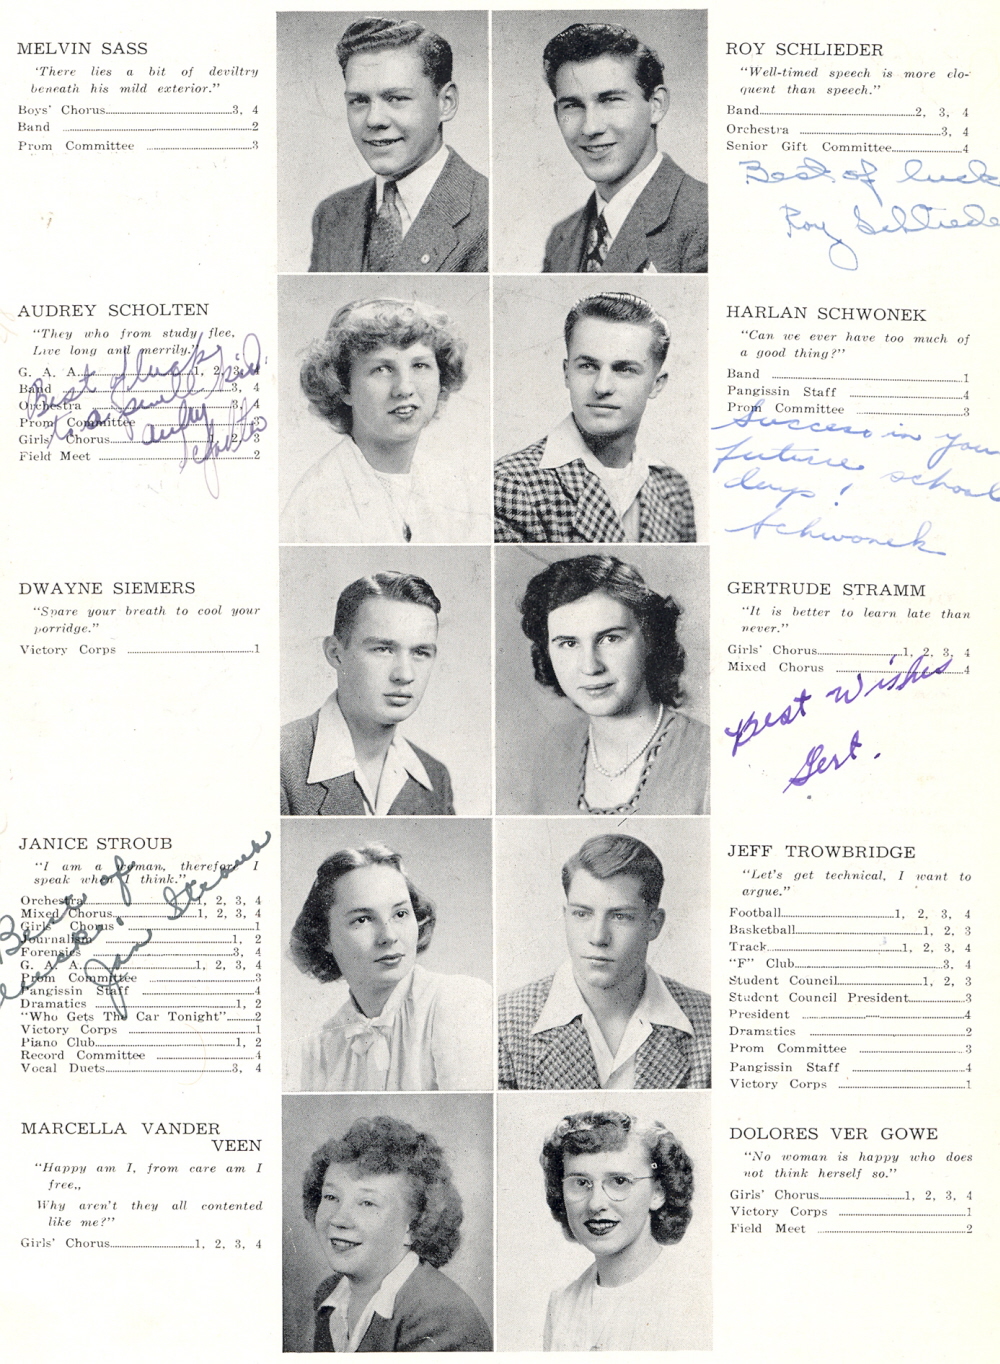 MELVIN SASS
'There lies a bit of deviltry
beneath his mild exterior."
Boys' Chorus 3, 4
Band 2
Prom Committee 3
ROY SCHLIEDER
"Well-timed speech is more elo-
quent than speech."
Band 2, 3, 4
Orchestra 3, 4
Senior Gift Committee 4
Best of luck
Roy Schliede
AUDREY SCHOLTEN
"They who from study flee,
Live long and merrily."
G. A. A. 1, 2, 3, 4
Band 3, 4
Orchestra 3, 4
Prom Committee 3
Girls' Chorus 1, 2, 3
Field Meet 2
Best of luck
to a swell kid
Audrey
Scholten
HARLAN SCHWONEK
"Can we ever have too much of
a good thing?"
Band 1
Pangissin Staff 4
Prom Committee 3
Success in your
future school
days!
Schwonek
DWAYNE SIEMERS
"Spare your breath to cool your
porridge."
Victory Corps 1
GERTRUDE STRAMM
"It is better to learn late than
never."
Girls' Chorus 1, 2, 3, 4
Mixed Chorus 4
Best Wishes
Gert.
JANICE STROUB
"I am a woman, therefore I
speak when I think."
Orchestra 1, 2, 3, 4
Mixed Chorus 1, 2, 3, 4
Girls' Chorus 1
Journalism 1, 2
Forensics 3, 4
G. A. A. 1, 2, 3, 4
Prom Committee 3
Pangissin Staff 4
Dramatics 1, 2
"Who Gets The Car Tonight" 2
Victory Corps 1
Piano Club 1, 2
Record Committee 4
Vocal Duets 3, 4
Best of
Jan Stroub
JEFF TROWBRIDGE
"Let's get technical, I want to
argue."
Football 1, 2, 3, 4
Basketball 1, 2, 3
Track 1, 2, 3, 4
"F" Club 3, 4
Student Council 1, 2, 3
Student Council President 3
President 4
Dramatics 2
Prom Committee 3
Pangissin Staff 4
Victory Corps 1
MARCELLA VANDER
VEEN
"Happy am I, from care am I
free,,
Why aren't they all contented
like me?"
Girls' Chorus 1, 2, 3, 4
DOLORES VER GOWE
"No woman is happy who does
not think herself so."
Girls' Chorus 1, 2, 3, 4
Victory Corps 1
Field Meet 2